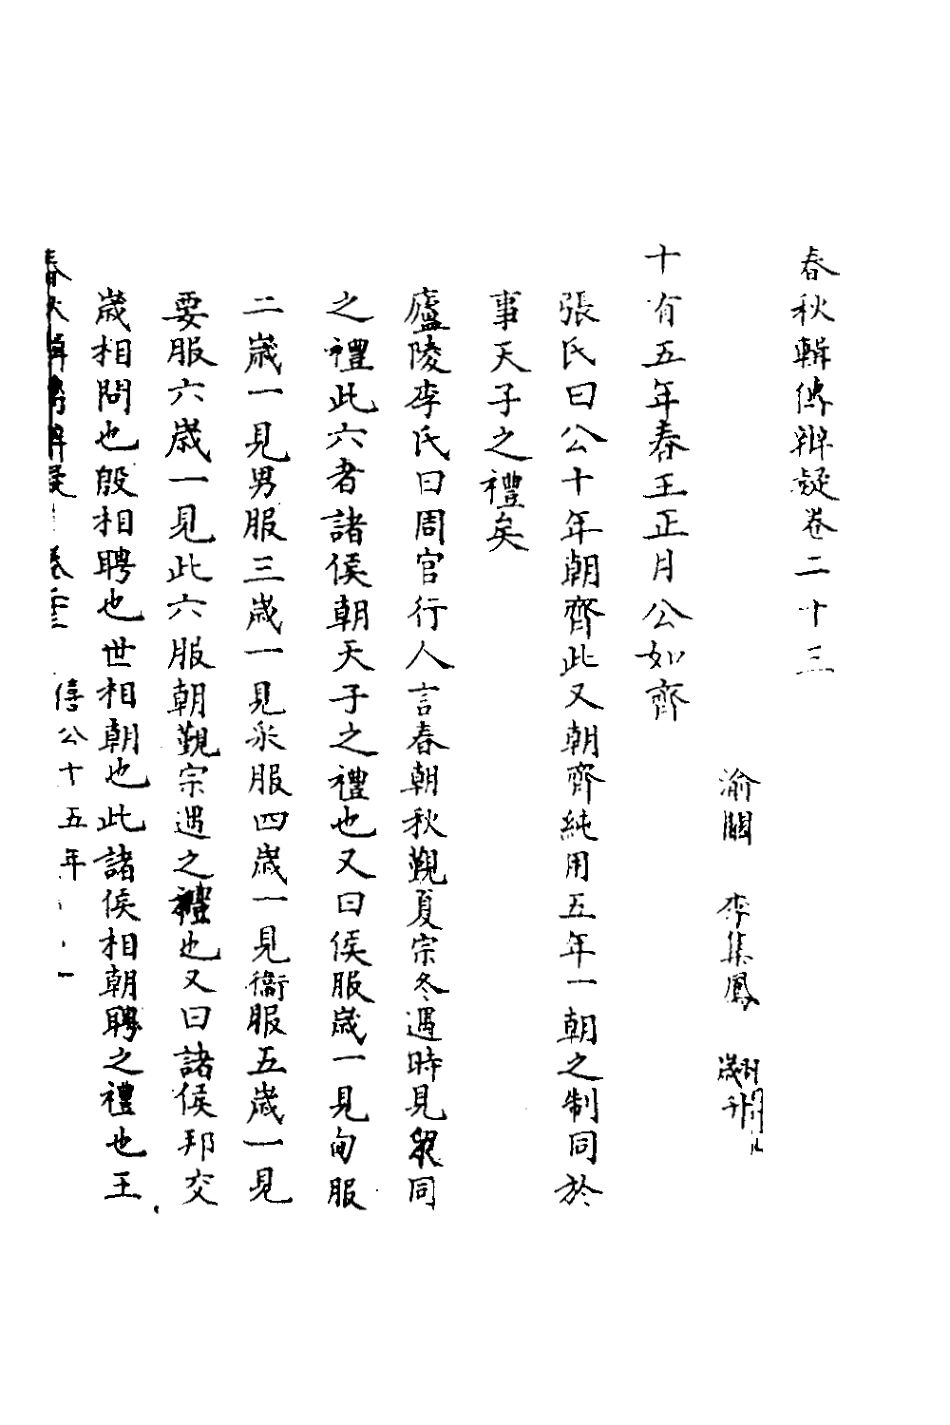 春秋輯傳辯疑卷二十三
渝關 李集鳳 翽升
十有五年春王正月公如齊
張氏曰公十年朝齊此又朝齊純用五年一朝之制同於
事天子之禮矣
廬陵李氏曰周官行人言春朝秋覲夏宗冬遇時見衆同
之禮此六者諸侯朝天子之禮也又曰侯服歲一見甸服
二歲一見男服三歲一見采服四歲一見衞服五歲一見
要服六歲一見此六服朝覲宗遇之禮也又曰諸侯邦交
歲相問也殷相聘也世相朝也此諸侯相朝聘之禮也王
春秋輯傳辨疑 卷二十三 僖公十五年 一